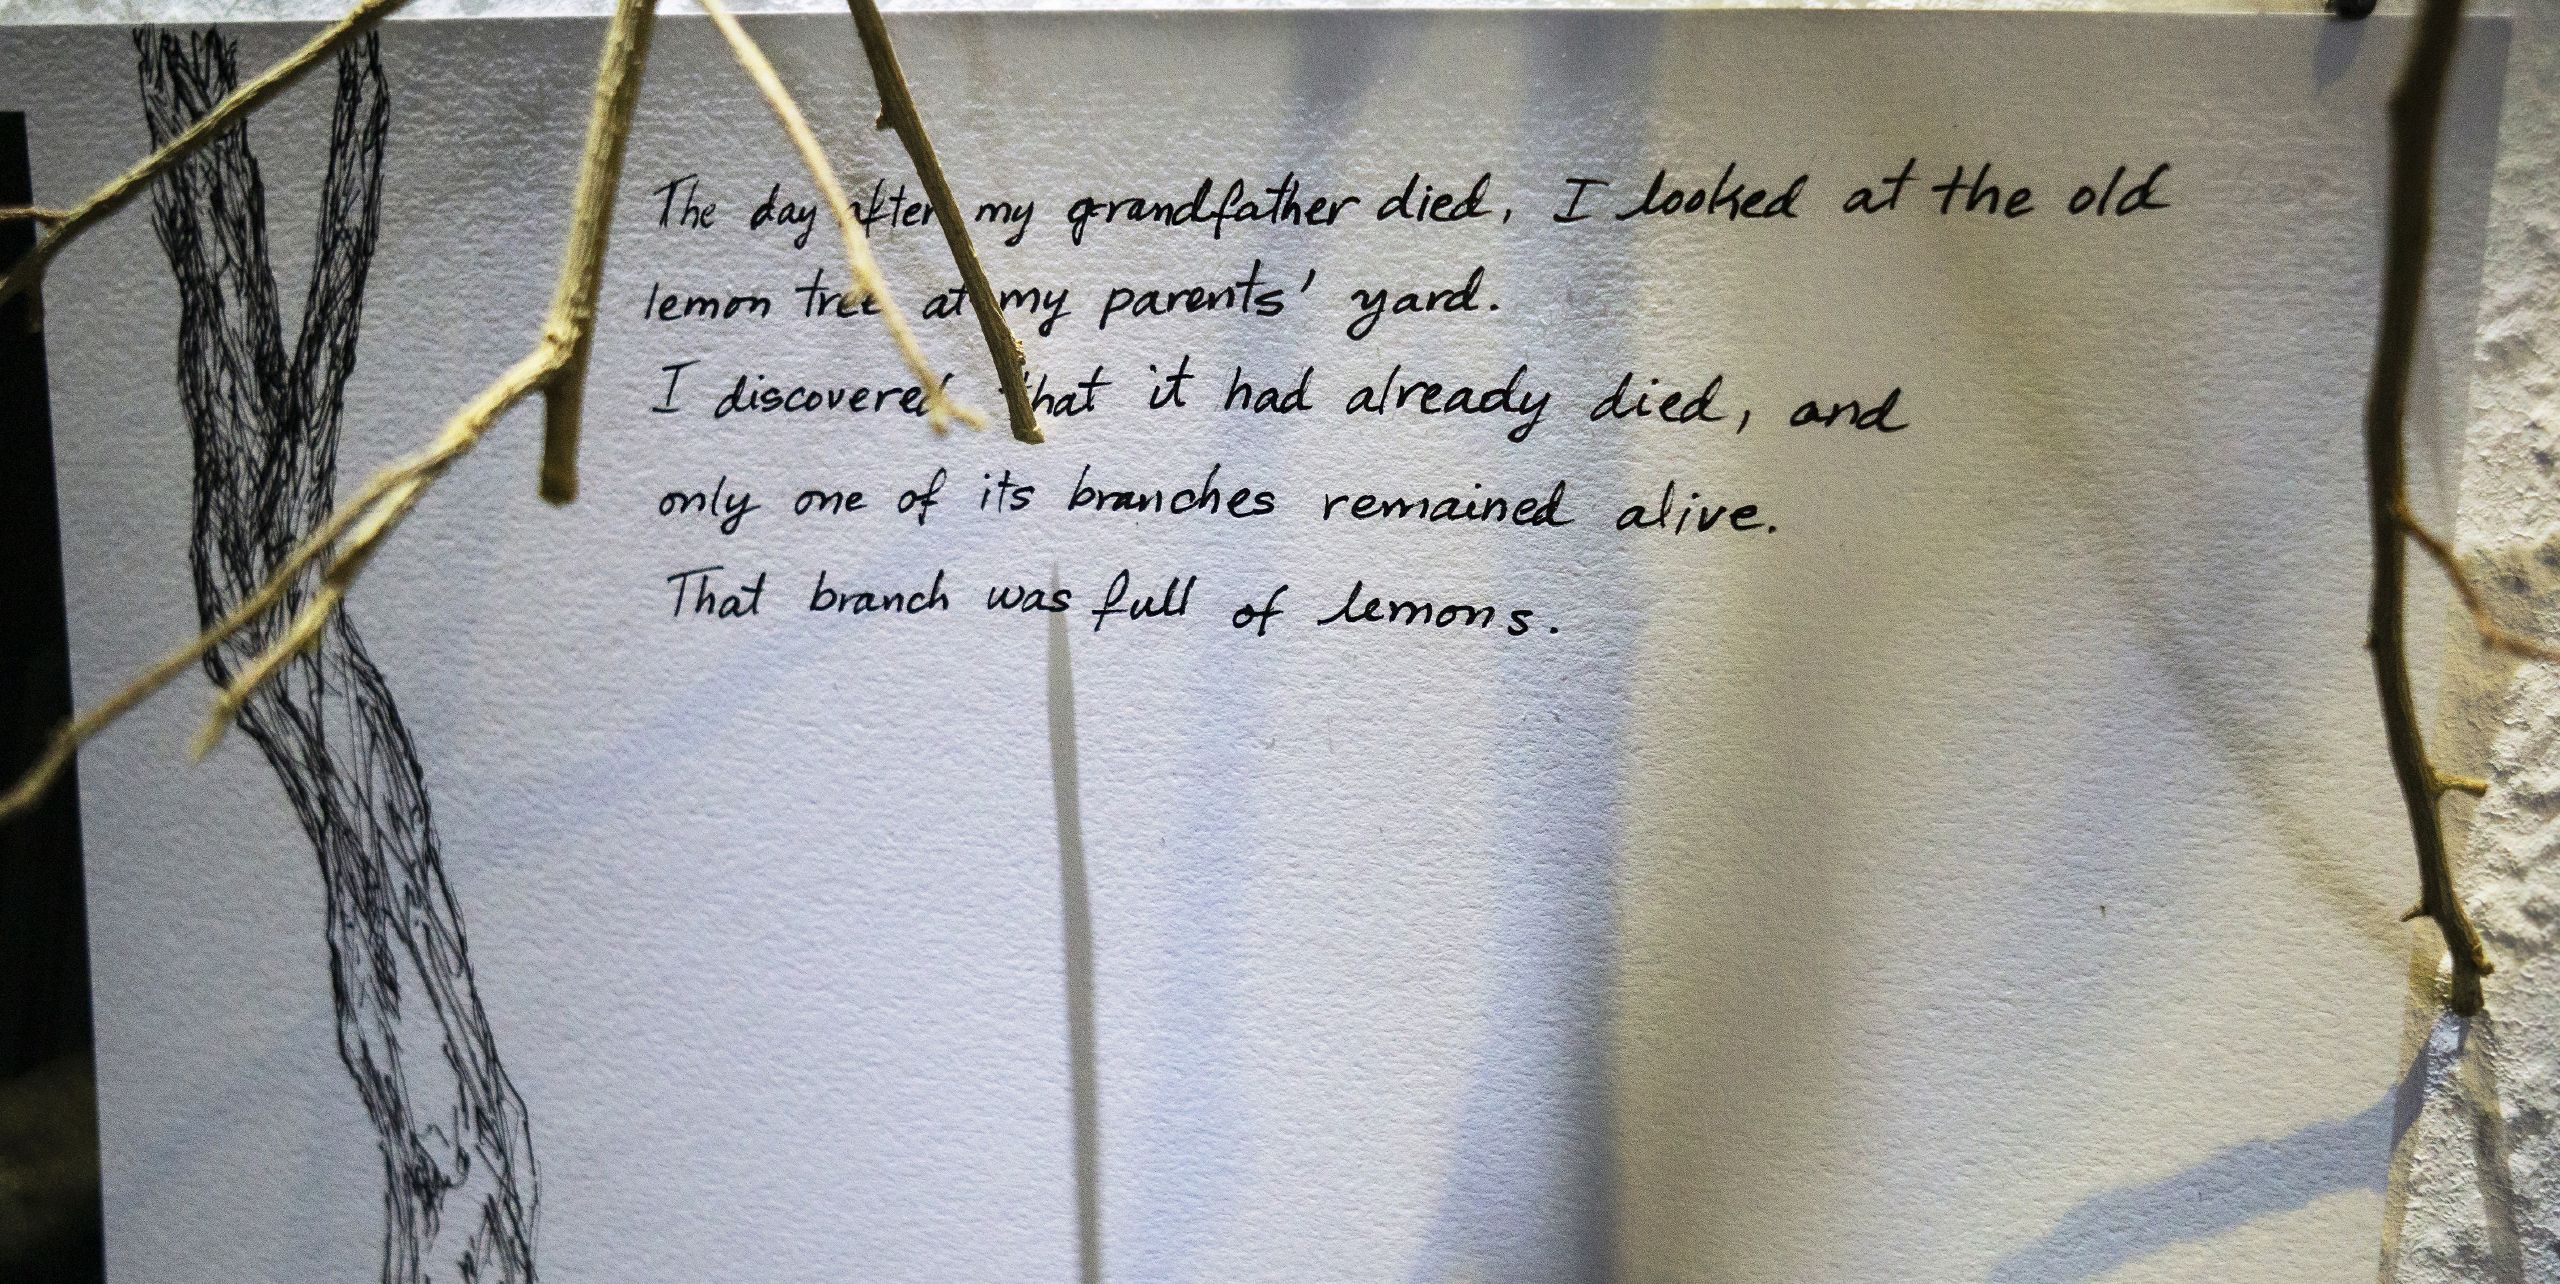 The day after my grandfather died, I looked at the old
lemon tree at my parents' yard.
I discovered that it had already died, and
only one of its branches remained alive.
That branch was full of lemons.